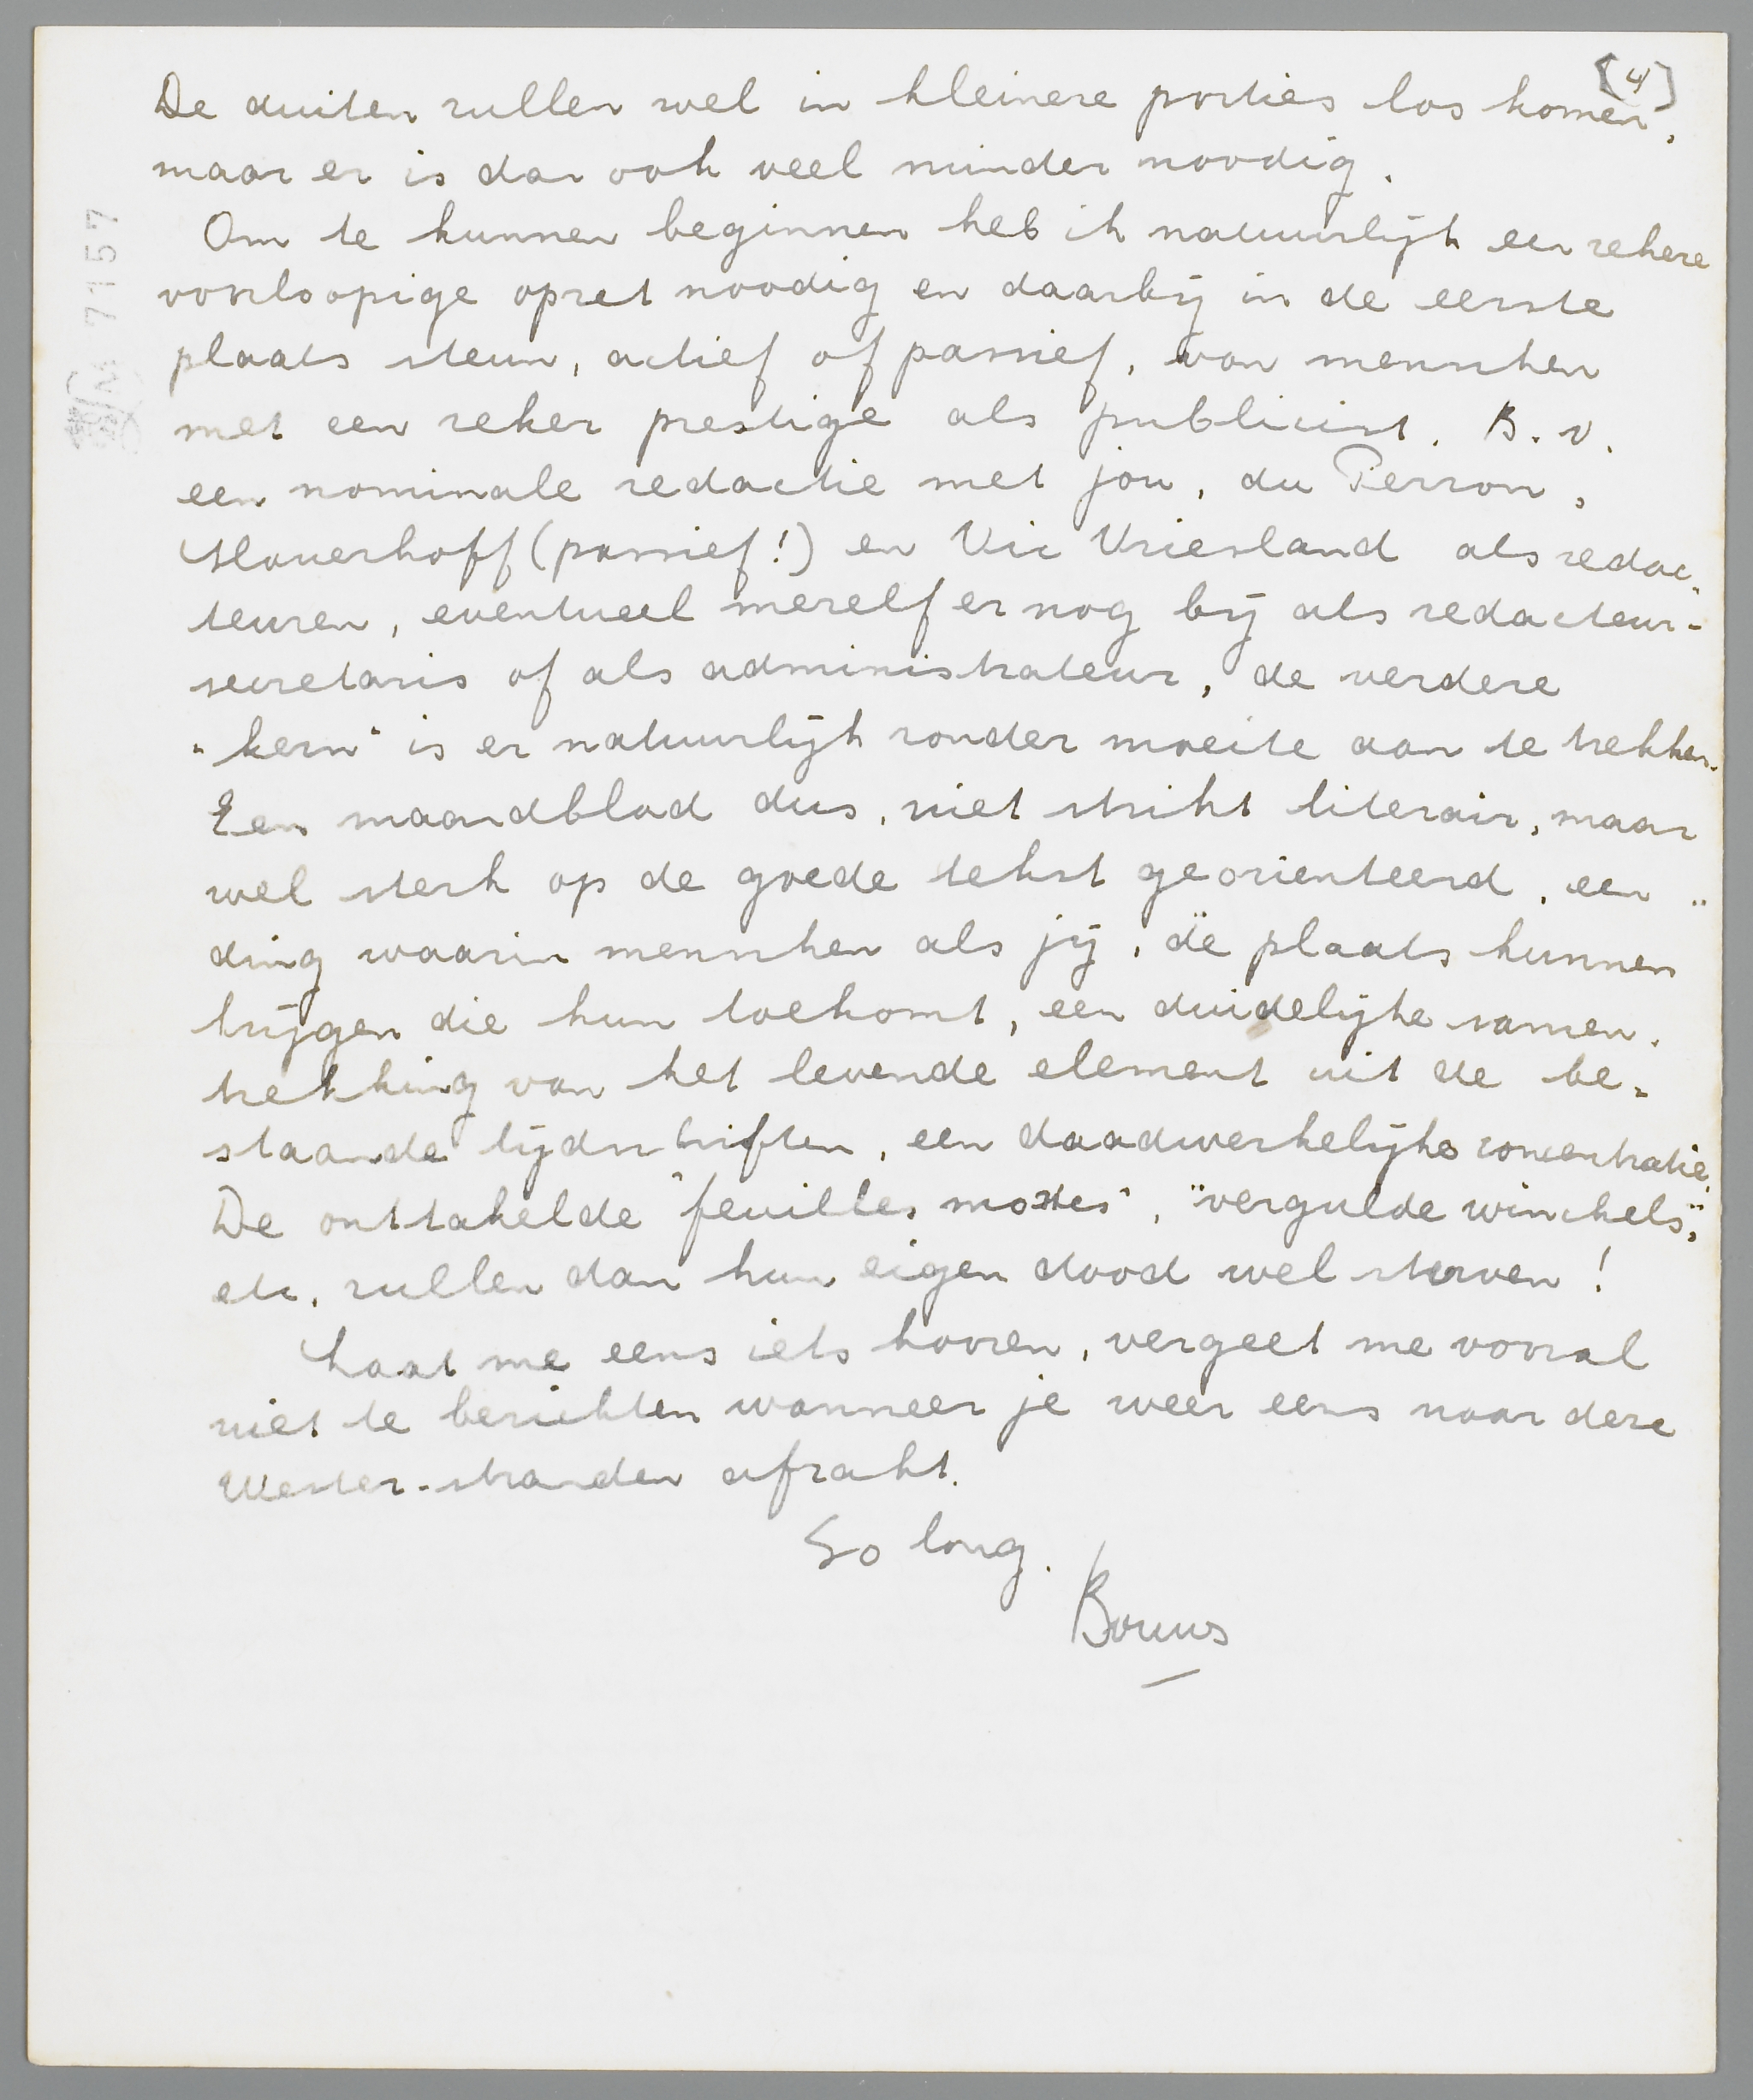 [4]
De duiten zullen wel in kleinere porties los komen,
maar er is dan ook veel minder noodig.
Om te kunnen beginnen heb ik natuurlijk een zekere
voorloopige opzet noodig en daarbij in de eerste
plaats steun, actief of passief, van menschen
met een zeker prestige als publicist. B.v.
een nominale redactie met jou, du Perron,
Slauerhoff (passief!) en Vic Vriesland als redac-
teuren, eventueel mezelf er nog bij als redacteur-
secretaris of als administrateur, de verdere
"kern" is er natuurlijk zonder moeite aan te trekken.
Een maandblad dus, niet strikt literair, maar
wel sterk op de goede tekst georienteerd, een
ding waarin menschen als jij, de plaats kunnen
krijgen die hun toekomt, een duidelijke samen-
trekking van het levende element uit de be-
staande tijdschriften, een daadwerkelijke concentratie.
De onttakelde "feuilles mortes", "vergulde winckels",
etc. zullen dan hun eigen dood wel sterven!
Laat me eens iets hooren, vergeet me vooral
niet te berichten wanneer je weer eens naar deze
Wester-stranden afzakt.
So long.
Bouws
7157